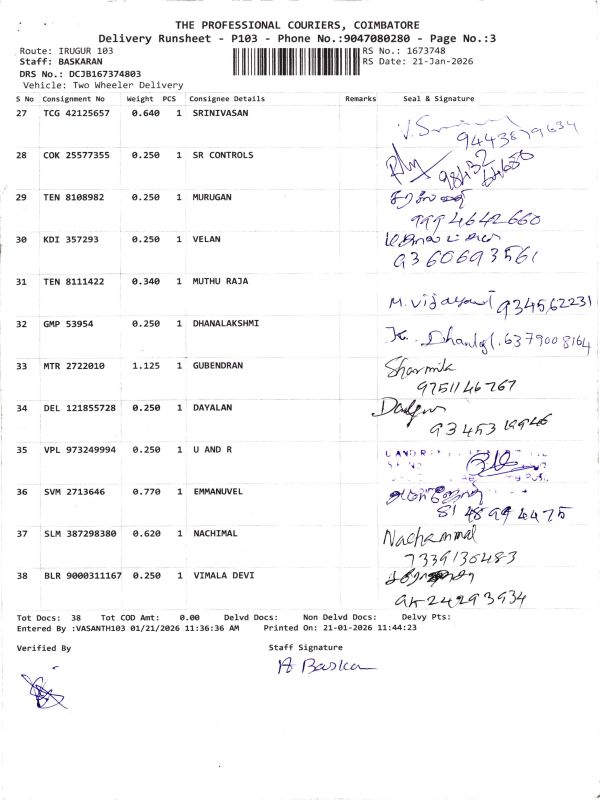 THE PROFESSIONAL COURIERS, COIMBATORE
Delivery Runsheet - P103 - Phone No.:9047080280 - Page No.:3
Route: IRUGUR 103
RS No.: 1673748
Staff: BASKARAN
RS Date: 21-Jan-2026
DRS No.: DCJB167374803
Vehicle: Two Wheeler Delivery
S No Consignment No Weight PCS Consignee Details Remarks Seal & Signature
27 TCG 42125657 0.640 1 SRINIVASAN
9443879634
28 COK 25577355 0.250 1 SR CONTROLS
29 TEN 8108982 0.250 1 MURUGAN
9994642660
30 KDI 357293 0.250 1 VELAN
9360693561
31 TEN 8111422 0.340 1 MUTHU RAJA
M. Vijayant 934562231
32 GMP 53954 0.250 1 DHANALAKSHMI
6379008164
33 MTR 2722010 1.125 1 GUBENDRAN
Sharmila
9751146767
34 DEL 121855728 0.250 1 DAYALAN
35 VPL 973249994 0.250 1 U AND R
36 SVM 2713646 0.770 1 EMMANUVEL
8148994475
37 SLM 387298380 0.620 1 NACHIMAL
Nachammal
7339136483
38 BLR 9000311167 0.250 1 VIMALA DEVI
Tot Docs: 38 Tot COD Amt: 0.00 Delvd Docs: Non Delvd Docs: Delvy Pts:
Entered By :VASANTH103 01/21/2026 11:36:36 AM Printed On: 21-01-2026 11:44:23
Verified By
Staff Signature
A Baskaran